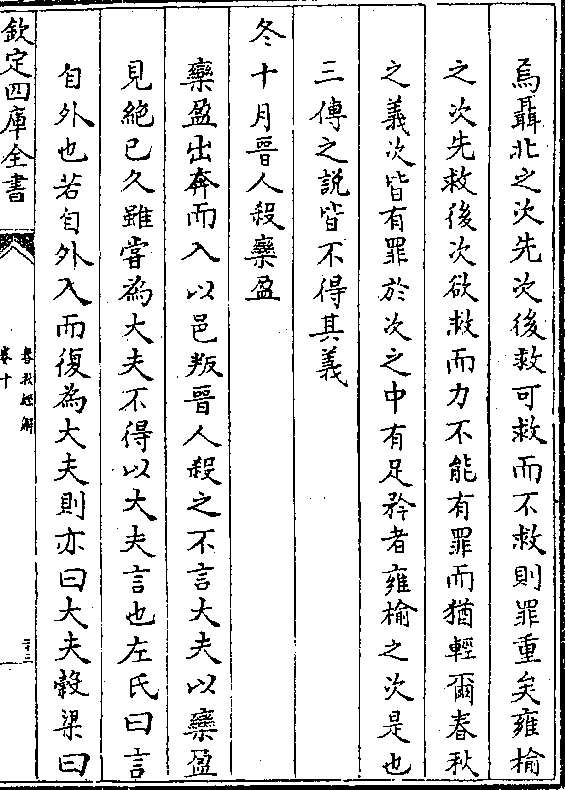 焉聶北之次先次後救可救而不救則罪重矣雍榆
之次先救後次欲救而力不能有罪而猶輕爾春秋
之義次皆有罪於次之中有足矜者雍榆之次是也
三傳之説皆不得其義
冬十月晉人殺欒盈
欒盈出奔而入以邑叛晉人殺之不言大夫以欒盈
見絶已久雖嘗為大夫不得以大夫言也左氏曰言
自外也若自外入而復為大夫則亦曰大夫穀梁曰
欽定四庫全書
春秋經解
卷十
二十三